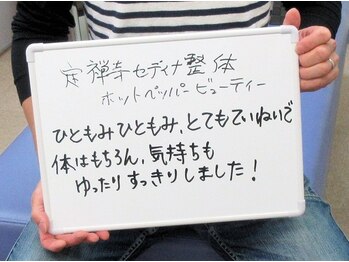 定禅寺セディナ整体
ホットペッパービューティー
ひともみひともみ、とてもていねいで
体はもちろん、気持ちも
ゆったりすっきりしました！